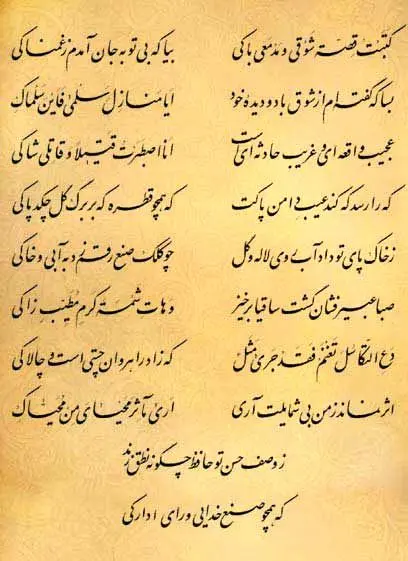 کتبت قصة شوقی و مدمعی باکی بیا که بی تو به جان آمدم ز غمناکی
بسا که گفته‌ام از شوق با دو دیدهٔ خود ایا منازل سلمی فاین سلماک
عجیب واقعه‌ای و غریب حادثه‌ای است انا اصطبرت قتیلا و قاتلی شاکی
که را رسد که کند عیب دامن پاکت که همچو قطره که بر برگ گل چکد پاکی
ز خاک پای تو داد آب روی لاله و گل چو کلک صنع رقم زد به آبی و خاکی
صبا عبیر فشان گشت ساقیا برخیز و هات شمسة کرم مطیب زاکی
دع التکاسل تغنم فقد جری مثل که زاد راهروان چستی است و چالاکی
اثر نماند ز من بی شمایلت آری اری مآثر محیای من محیاک
ز وصف حسن تو حافظ چگونه نطق زند
که همچو صنع خدایی ورای ادراکی